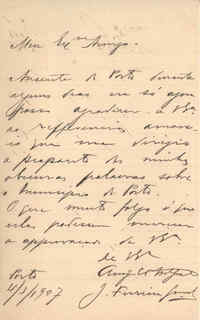 Meu Ex.mo Amigo.
Ausente do Porto durante
alguns dias eu só agora
posso agradecer a VEx.
as referencias
que me dirigiu
a proposito das minhas
obscuras palavras sobre
o municipio do Porto.
O que muito folgo é que
ellas podessem merecer
a approvação de VEx.
de VEx.
Porto
4/3/1907
J. Ferreira